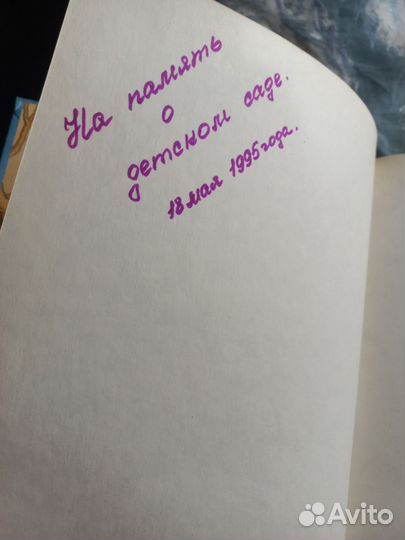 На память
о
детском саде.
18 мая 1995 года.
Avito